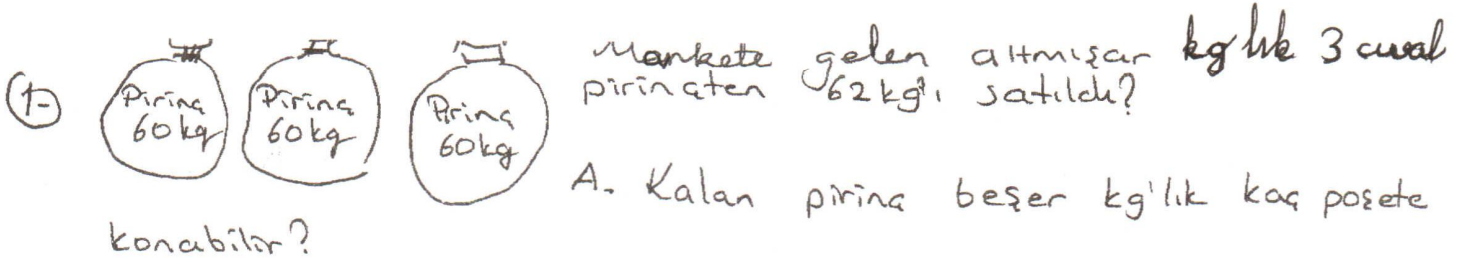 1-
Pirinç
60 kg
Pirinç
60 kg
Pirinç
60 kg
Markete gelen altmışar kg lık 3 çuval
pirinçten 62 kg'ı satıldı?
A. Kalan pirinç beşer kg'lık kaç poşete
konabilir?